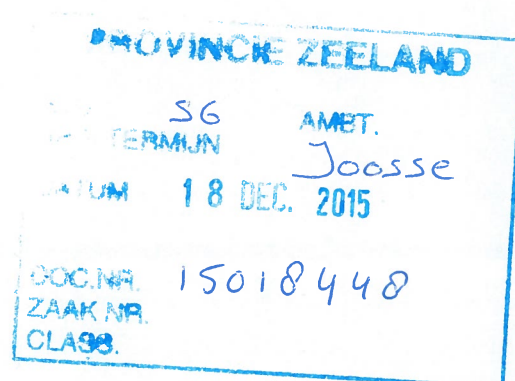 PROVINCIE ZEELAND
SG AMBT.
TERMIJN
Joosse
DATUM 18 DEC. 2015
DOC.NR. 15018448
ZAAK NR.
CLASS.